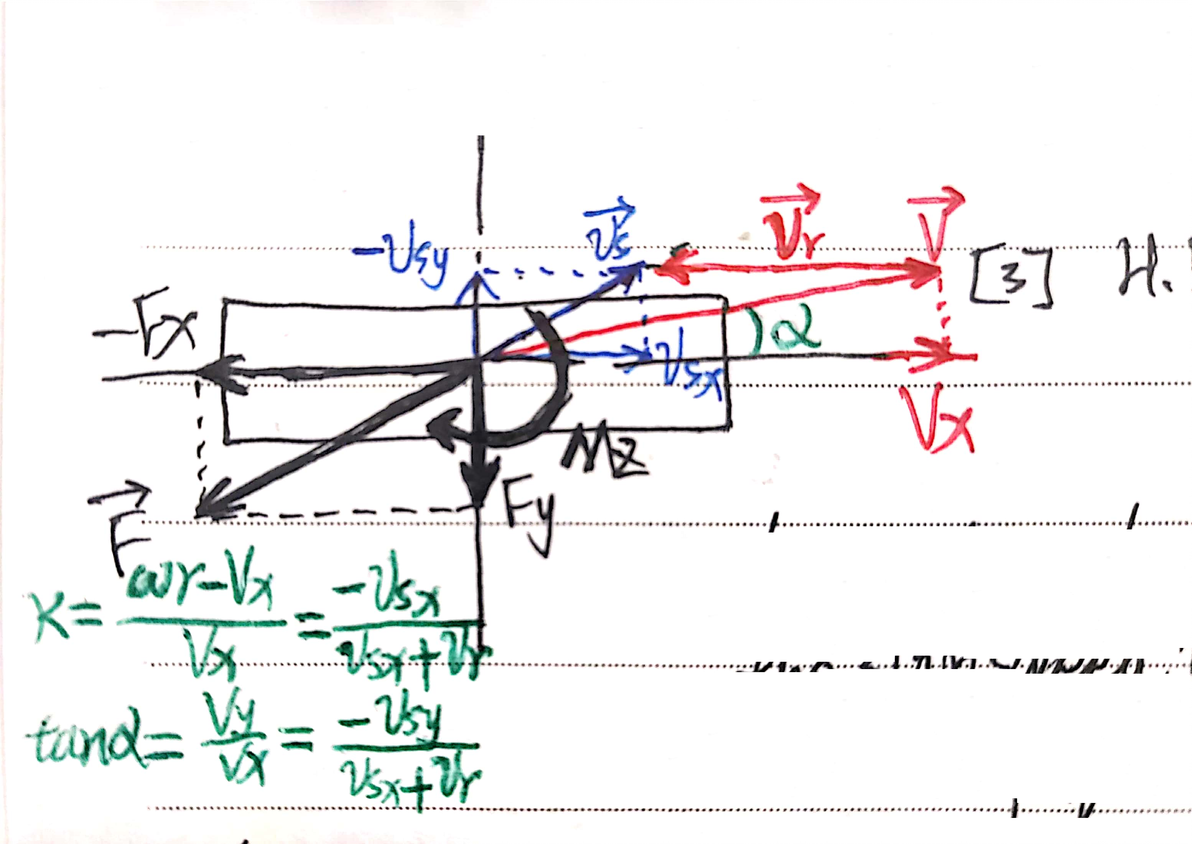 -Vsy
Vs
Vr
V
[3] H.
-Fx
α
Vsx
Vx
Mz
Fy
F
K = ωr-Vx / Vx = -Vsx / Vsx+Vr
tanα = Vy / Vx = -Vsy / Vsx+Vr